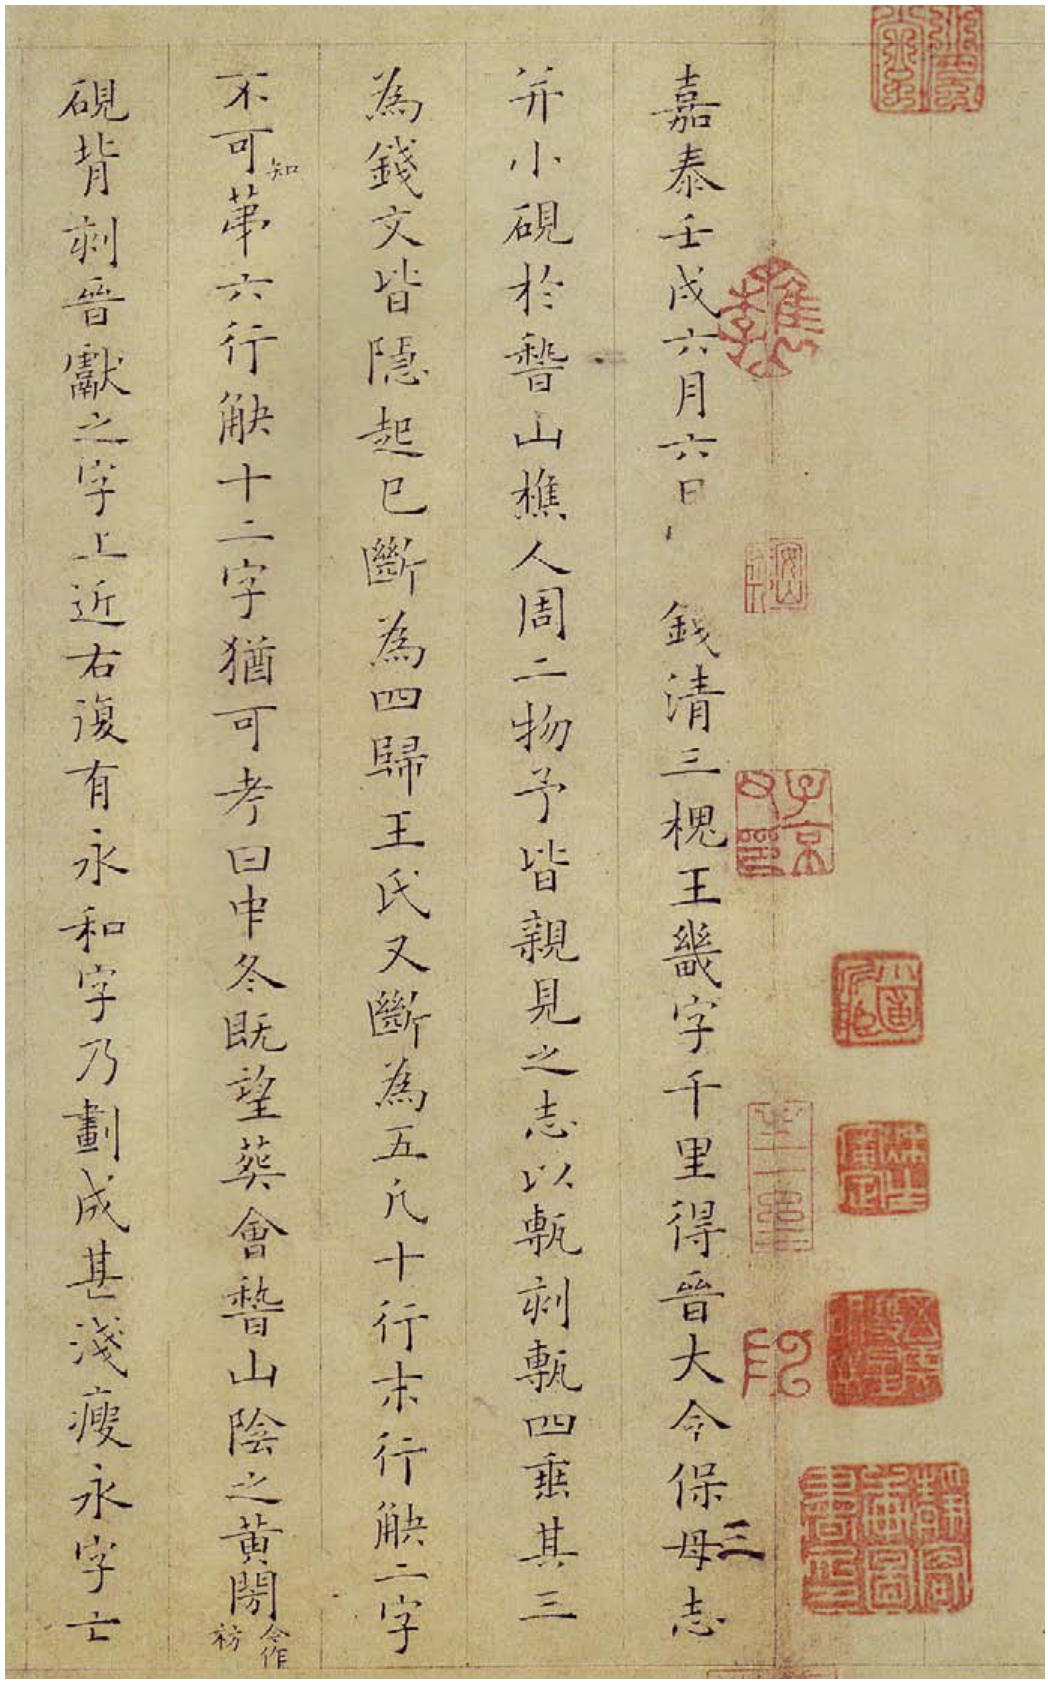 嘉泰壬戌六月六日 錢清三槐王畿字千里得晉大令保母志
三
并小硯於稽山樵人周二物予皆親見之志以甎刻甎四垂其三
為錢文皆隱起已斷為四歸王氏又斷為五凡十行末行觖二字
不可知苐六行觖十二字猶可考曰中冬既望葬會稽山陰之黃閍
今作祊
硯背刻晉獻之字上近右復有永和字乃劃成甚淺瘦永字亡
子京父印